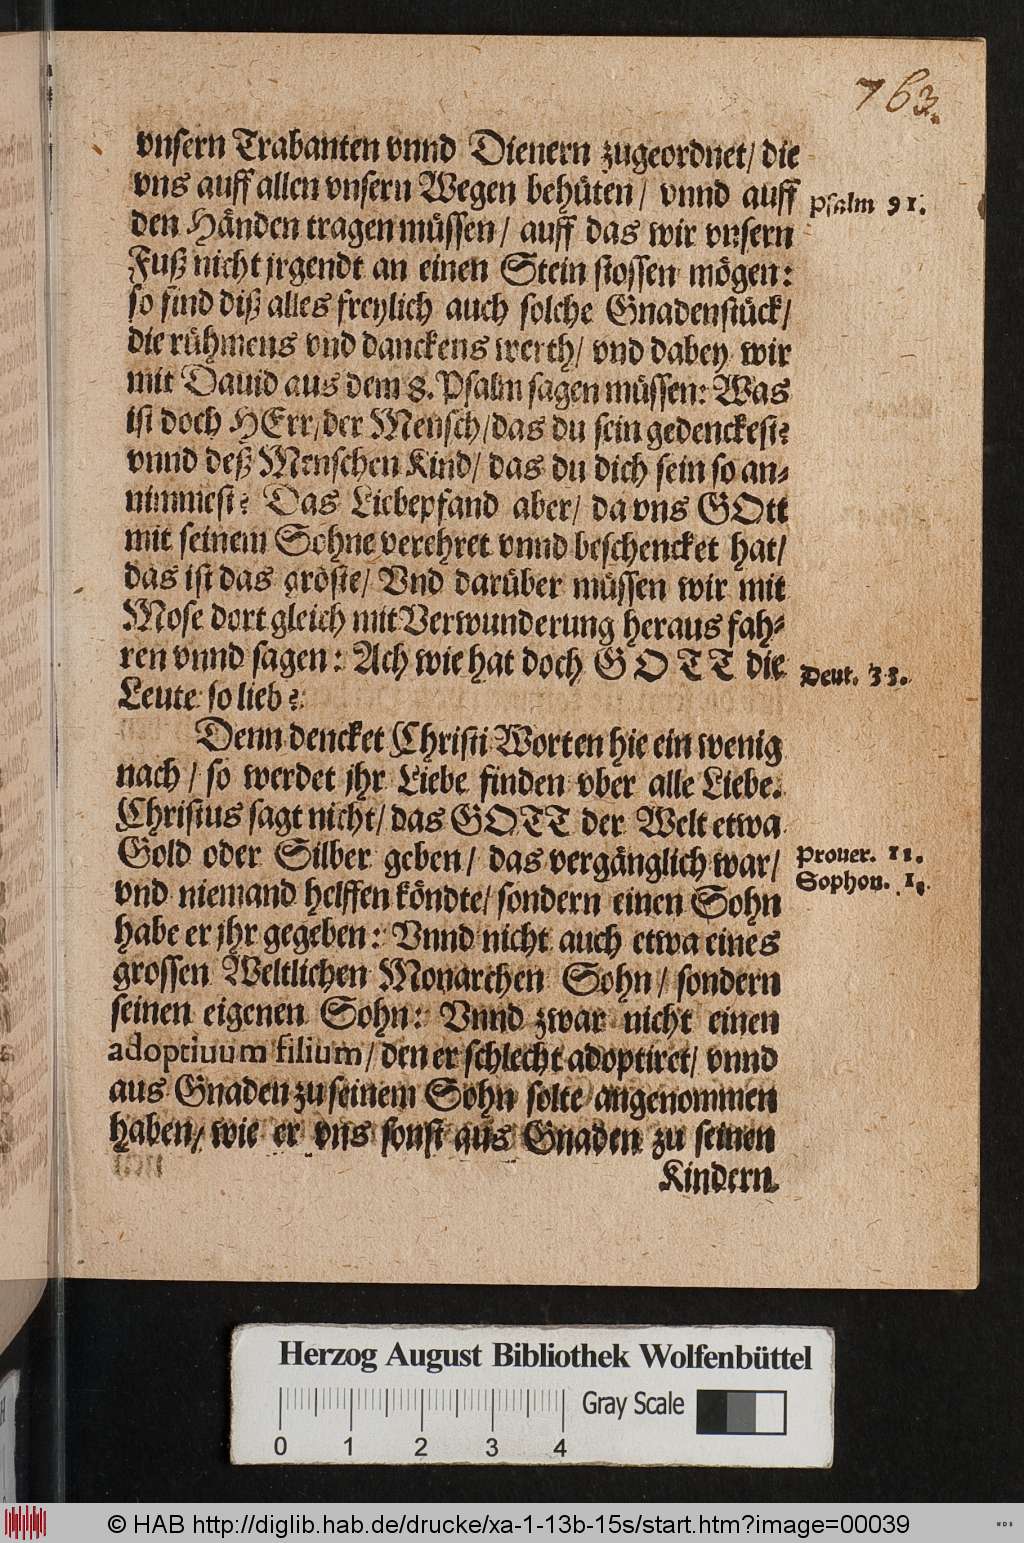 763.
vnsern Trabanten vnnd Dienern zugeordnet/ die
vns auff allen vnsern Wegen behüten/ vnnd auff
Psalm 91.
den Händen tragen müssen/ auff das wir vnsern
Fuß nicht jrgendt an einen Stein stossen mögen:
so sind diß alles freylich auch solche Gnadenstück/
die rühmens vnd danckens werth/ vnd dabey wir
mit Dauid aus dem 8. Psalm sagen müssen: Was
ist doch HErr/ der Mensch/ das du sein gedenckest?
vnnd deß Menschen Kind/ das du dich sein so an-
nimmest? Das Liebepfand aber/ da vns GOtt
mit seinem Sohne verehret vnnd beschencket hat/
das ist das gröste/ Vnd darüber müssen wir mit
Mose dort gleich mit Verwunderung heraus fah-
ren vnnd sagen: Ach wie hat doch GOTT die
Deut. 33.
Leute so lieb?
Denn dencket Christi Worten hie ein wenig
nach/ so werdet jhr Liebe finden vber alle Liebe.
Christus sagt nicht/ das GOTT der Welt etwa
Gold oder Silber geben/ das vergänglich war/
Prouer. 11.
vnd niemand helffen köndte/ sondern einen Sohn
Sophon. 1.
habe er jhr gegeben: Vnnd nicht auch etwa eines
grossen Weltlichen Monarchen Sohn/ sondern
seinen eigenen Sohn: Vnnd zwar nicht einen
adoptiuum filium/ den er schlecht adoptiret/ vnnd
aus Gnaden zu seinem Sohn solte angenommen
haben/ wie er vns sonst aus Gnaden zu seinen
Kindern
Herzog August Bibliothek Wolfenbüttel
Gray Scale
0 1 2 3 4
© HAB http://diglib.hab.de/drucke/xa-1-13b-15s/start.htm?image=00039